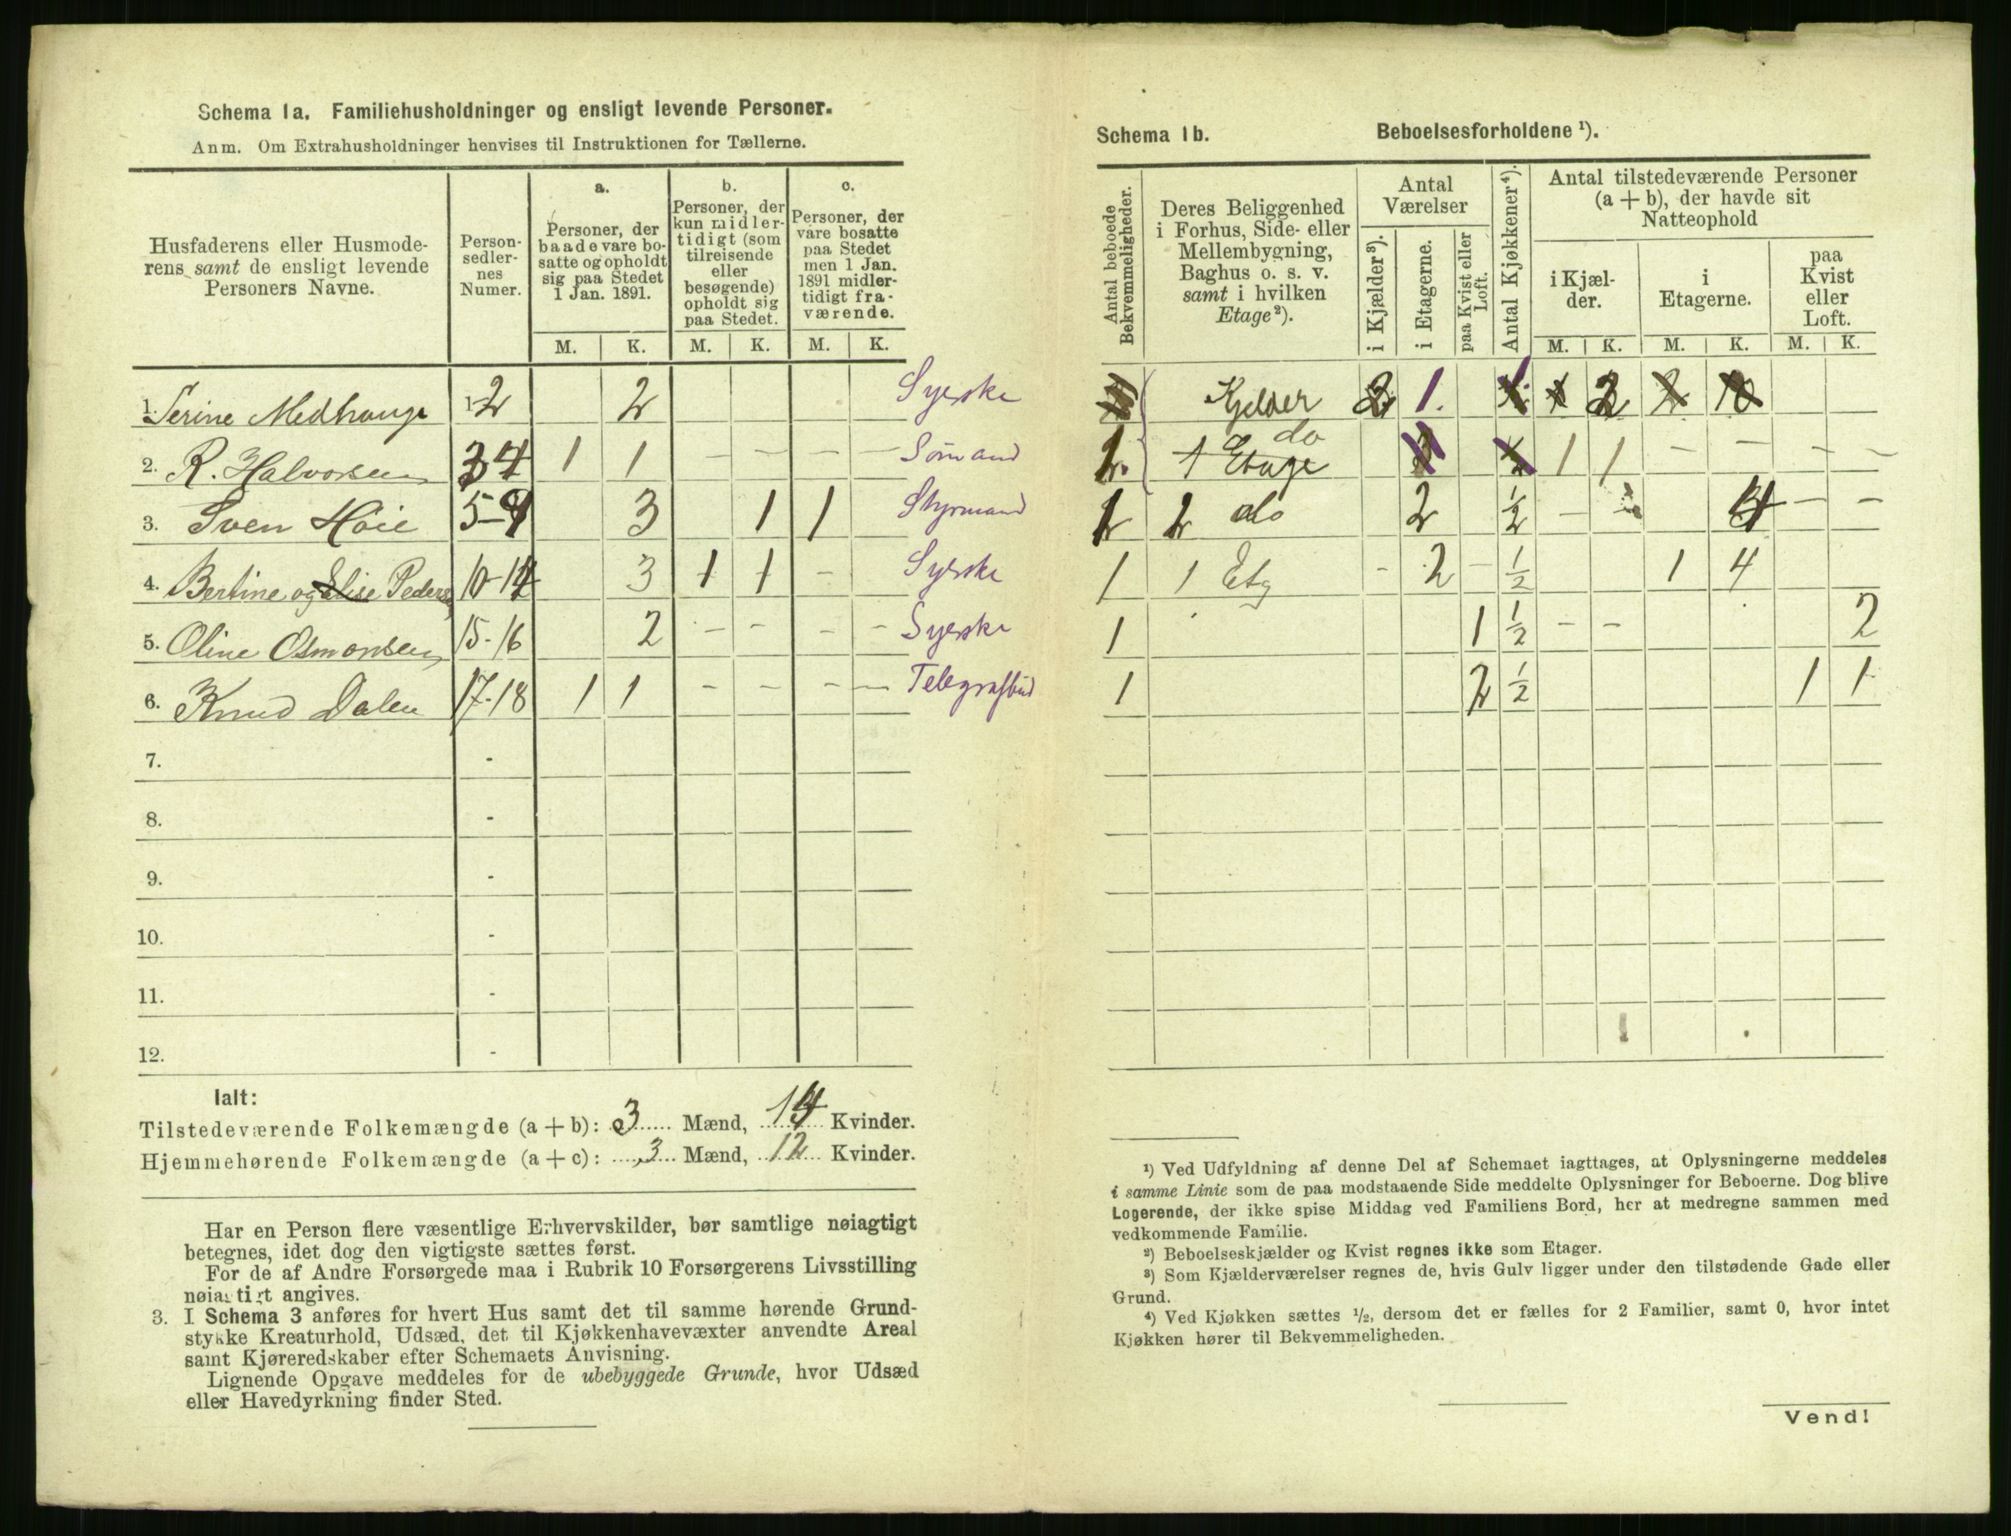 Schema 1a. Familiehusholdninger og ensligt levende Personer.
Anm. Om Extrahusholdninger henvises til Instruktionen for Tællerne.
Husfaderens eller Husmoderens samt de ensligt levende Personers Navne.
Personsedlernes Numer.
a. Personer, der baade vare bosatte og opholdt sig paa Stedet 1 Jan. 1891.
b. Personer, der kun midlertidigt (som tilreisende eller besøgende) opholdt sig paa Stedet.
c. Personer, der vare bosatte paa Stedet men 1 Jan. 1891 midlertidigt fraværende.
M. K. M. K. M. K.
1. Serine Medhaug 1-2 2 Syerske
2. R. Halvorsen 3 4 1 1 – – – – Sømand
3. Sven Høie 5-9 3 1 1 Styrmand
4. Bertine og Elise Peders 10-14 3 1 1 – Syerske
5. Oline Osmonsen 15-16 2 – – – – Syerske
6. Knud Dalen 17-18 1 1 – – – – Telegrafbud
7. -
8. -
9. -
10. -
11. -
12. -
Ialt:
Tilstedeværende Folkemængde (a + b): 3 Mænd, 14 Kvinder.
Hjemmehørende Folkemængde (a + c): 3 Mænd, 12 Kvinder.
Har en Person flere væsentlige Erhvervskilder, bør samtlige nøiagtigt
betegnes, idet dog den vigtigste sættes først.
For de af Andre Forsørgede maa i Rubrik 10 Forsørgerens Livsstilling
nøiagtigt angives.
3. I Schema 3 anføres for hvert Hus samt det til samme hørende Grund-
stykke Kreaturhold, Udsæd, det til Kjøkkenhavevæxter anvendte Areal
samt Kjøreredskaber efter Schemaets Anvisning.
Lignende Opgave meddeles for de ubebyggede Grunde, hvor Udsæd
eller Havedyrkning finder Sted.
Schema 1b. Beboelsesforholdene ¹).
Antal beboede Bekvemmeligheder.
Deres Beliggenhed i Forhus, Side- eller Mellembygning, Baghus o. s. v. samt i hvilken Etage²).
Antal Værelser
i Kjælder³).
i Etagerne.
paa Kvist eller Loft.
Antal Kjøkkener⁴).
Antal tilstedeværende Personer (a + b), der havde sit Natteophold
i Kjælder.
i Etagerne.
paa Kvist eller Loft.
M. K. M. K. M. K.
Kjelder 2 1. 1 2
1 1 Etage do 1 1 – – – –
1 2 do 2 ½ – 4 – –
1 1 Etg - 2 – ½ 1 4
1 1 ½ – – 2
1 2 ½ 1 1
¹) Ved Udfyldning af denne Del af Schemaet iagttages, at Oplysningerne meddeles
i samme Linie som de paa modstaaende Side meddelte Oplysninger for Beboerne. Dog blive
Logerende, der ikke spise Middag ved Familiens Bord, her at medregne sammen med
vedkommende Familie.
²) Beboelseskjælder og Kvist regnes ikke som Etager.
³) Som Kjælderværelser regnes de, hvis Gulv ligger under den tilstødende Gade eller
Grund.
⁴) Ved Kjøkken sættes ½, dersom det er fælles for 2 Familier, samt 0, hvor intet
Kjøkken hører til Bekvemmeligheden.
Vend!